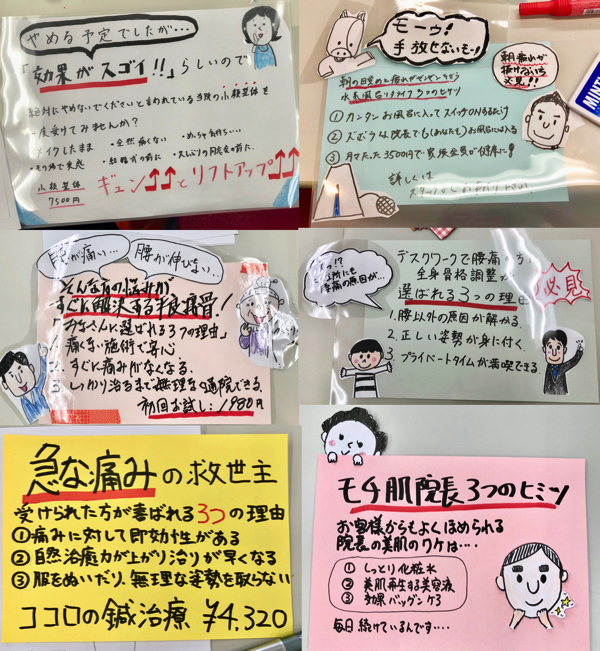 やめる予定でしたが…
「効果がスゴイ!!」らしいので
絶対にやめないでくださいと言われている当院の小顔整体を
一度受けてみませんか?
・メイクしたまま ・全然痛くない ・めっちゃ気持ちいい
・その場で実感 ・結婚式の前に ・久しぶりの同窓会の前に
小顔整体
7500円
ギュン↑↑とリフトアップ↑↑
モーゥ!
手放せないもー!
朝疲れが
抜けない方
必見!!
朝の目覚めと疲れがゼンゼンちがう
3つのヒミツ
① カンタン お風呂に入ってスイッチONするだけ
② ズボラな院長でも(あなたも)お風呂に入る
③ 月々たった3500円で家族全員が健康に!
詳しくは
スタッフ
MINI
腰が痛い…
腰が伸びない…
そんな方の悩みが
すぐに解決する半良接骨!
「みなさんに選ばれる3つの理由」
1. 痛くない施術で安心
2. すぐに痛みがなくなる。
3. しっかり治るまで無理なく通院できる。
初回お試し:1980円
えっ!?
他所にも
腰痛の原因が…
デスクワークで腰痛の方に
全身骨格調整が
選ばれる3つの理由
必見
1. 腰以外の原因が解かる。
2. 正しい姿勢が身に付く。
3. プライベートタイムが満喫できる
急な痛みの救世主
受けられた方が喜ばれる3つの理由
①痛みに対して即効性がある
②自然治癒力が上がり治りが早くなる
③服をぬいだり、無理な姿勢を取らない
ココロの鍼治療 ¥4.320
モチ肌院長3つのヒミツ
お客様からもよくほめられる
院長の美肌のワケは…
① しっとり化粧水
② 美肌再生する美容液
③ 効果バツグンケア
毎日続けているんです…